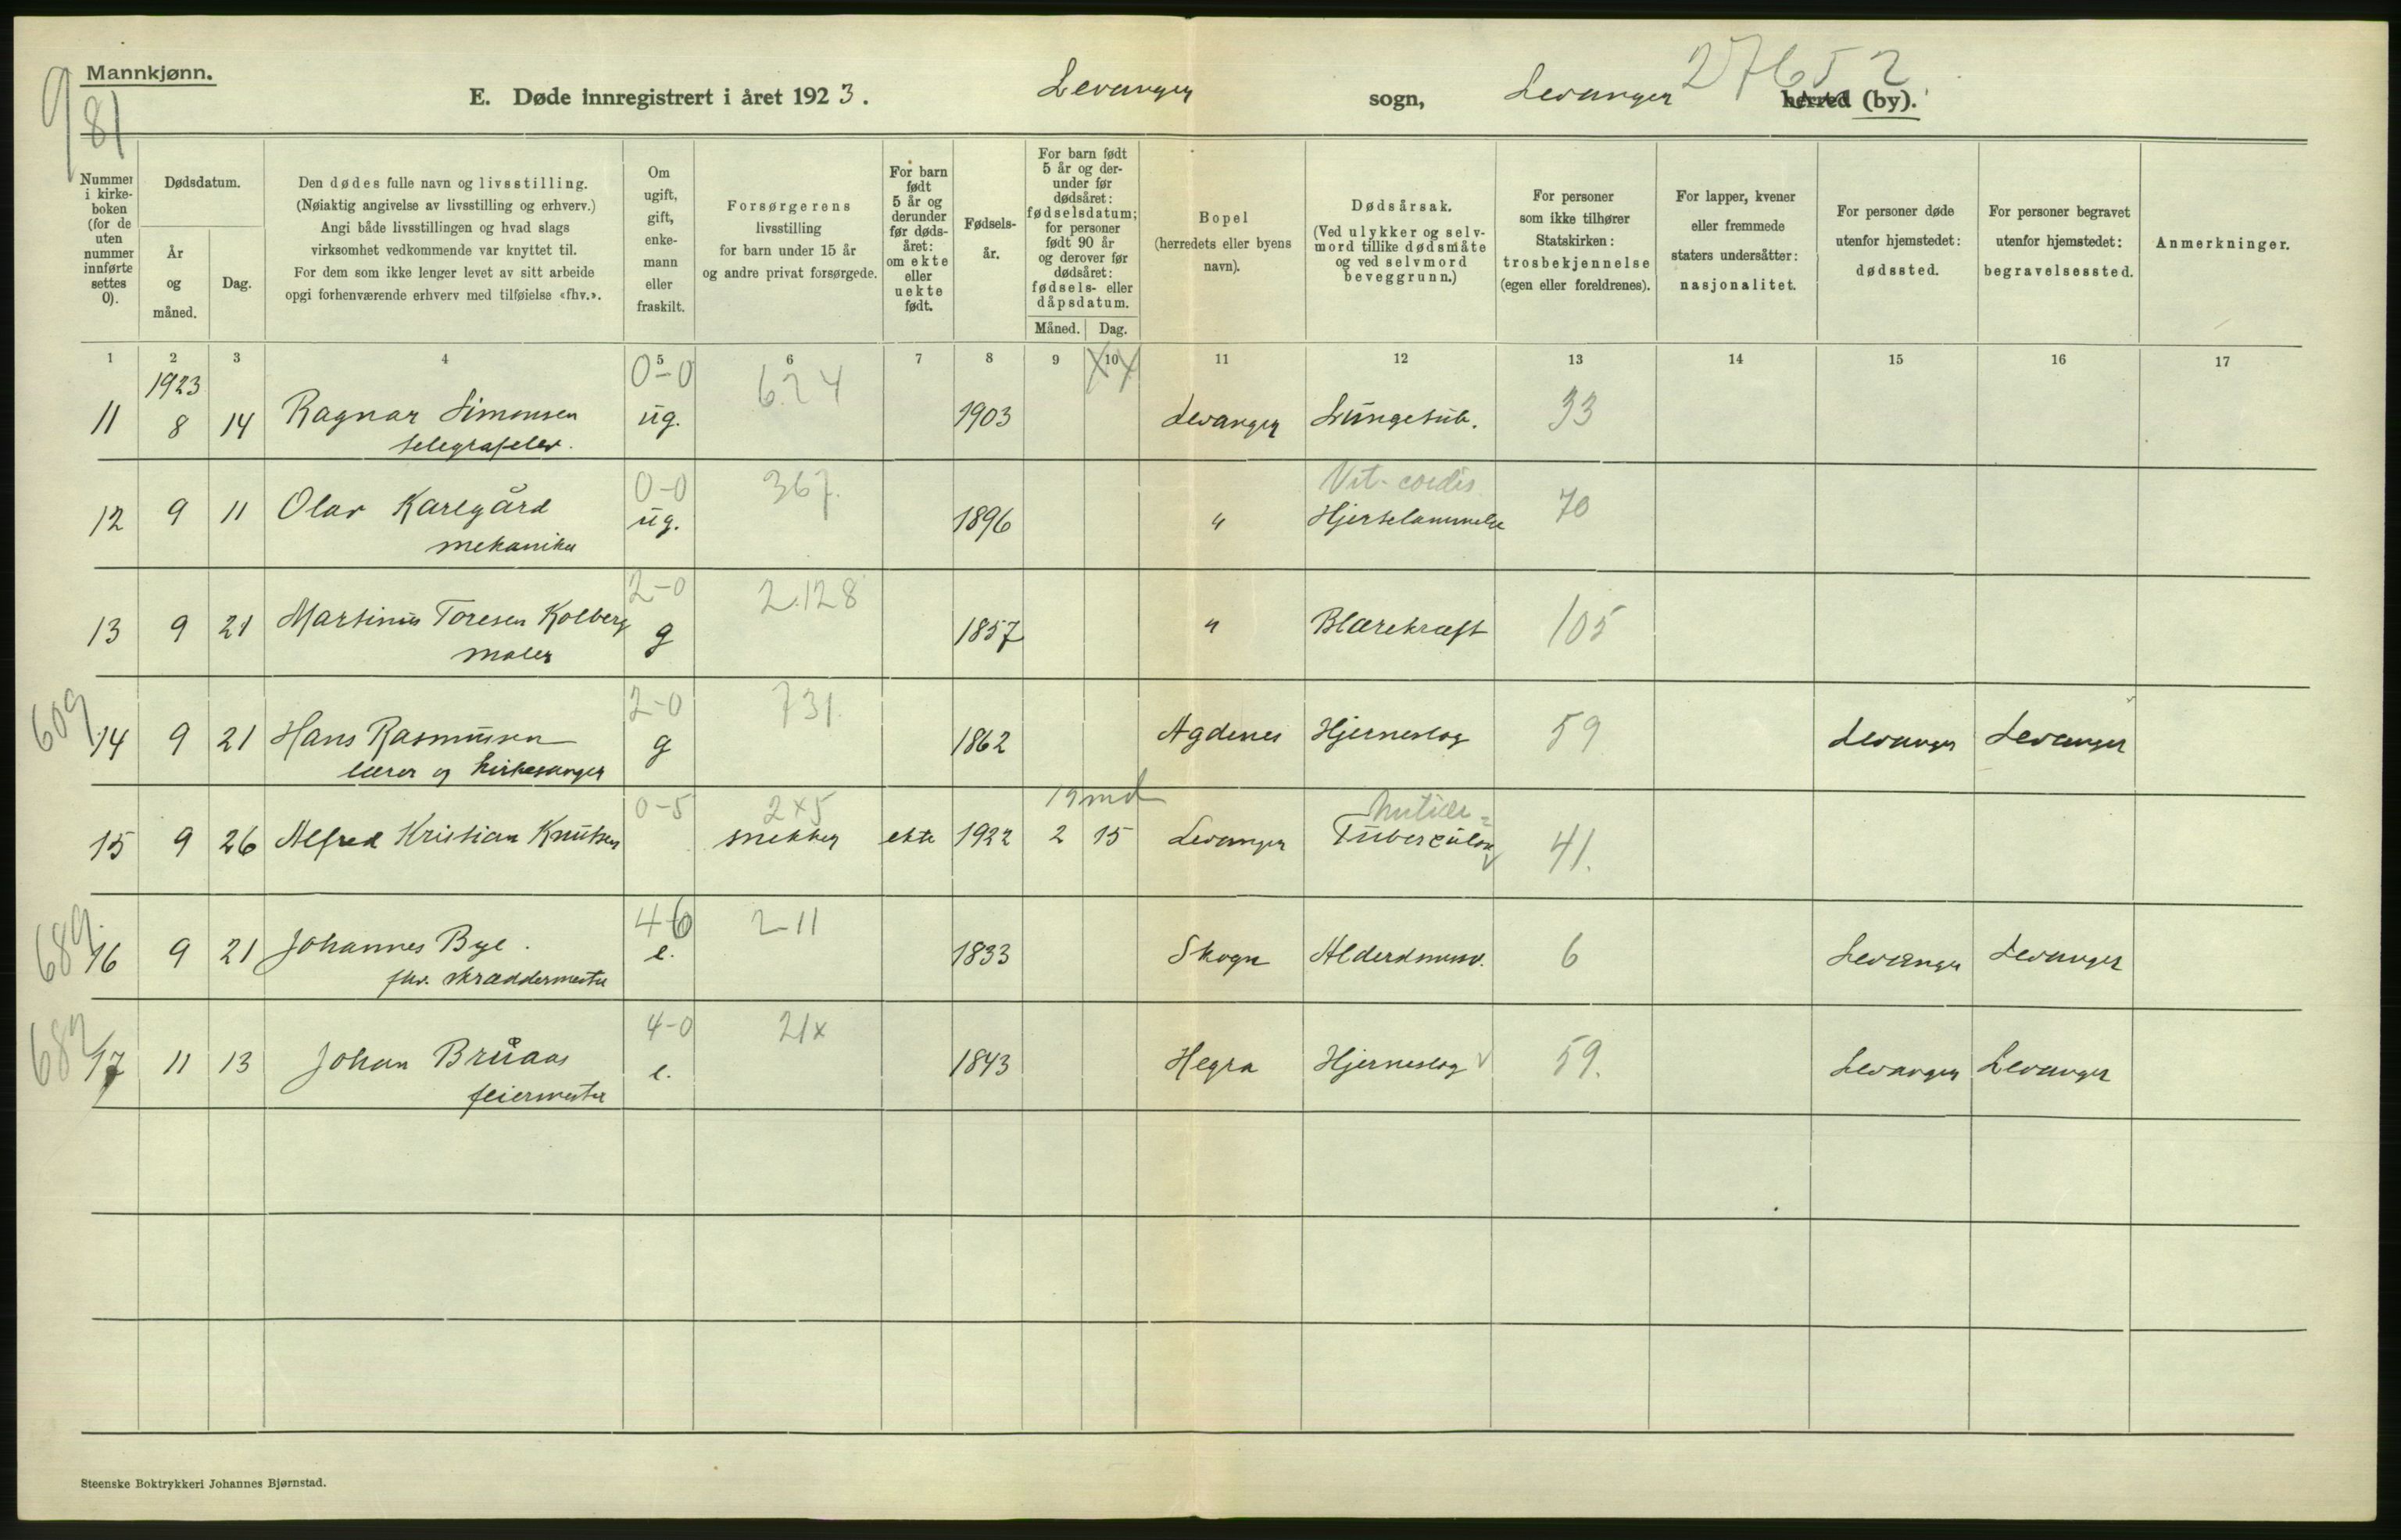 Mannkjønn.
981
E. Døde innregistrert i året 1923. Levanger sogn, Levanger herred (by).
27652
Nummer i kirkeboken (for de uten nummer innførte settes 0).
Dødsdatum.
År og måned.
Dag.
Den dødes fulle navn og livsstilling.
(Nøiaktig angivelse av livsstilling og erhverv.)
Angi både livsstillingen og hvad slags
virksomhet vedkommende var knyttet til.
For dem som ikke lenger levet av sitt arbeide
opgi forhenværende erhverv med tilføielse «fhv.».
Om ugift, gift, enkemann eller fraskilt.
Forsørgerens livsstilling for barn under 15 år og andre privat forsørgede.
For barn født 5 år og derunder før dødsåret: om ekte eller uekte født.
Fødselsår.
For barn født 5 år og derunder før dødsåret: fødselsdatum; for personer født 90 år og derover før dødsåret: fødsels- eller dåpsdatum.
Måned. Dag.
Bopel (herredets eller byens navn).
Dødsårsak. (Ved ulykker og selvmord tillike dødsmåte og ved selvmord beveggrunn.)
For personer som ikke tilhører Statskirken: trosbekjennelse (egen eller foreldrenes).
For lapper, kvener eller fremmede staters undersåtter: nasjonalitet.
For personer døde utenfor hjemstedet: dødssted.
For personer begravet utenfor hjemstedet: begravelsessted.
Anmerkninger.
1 2 3 4 5 6 7 8 9 10 11 12 13 14 15 16 17
1923 0-0 624 XX
11 8 14 Ragnar Simonsen ug. 1903 Levanger Lungetub. 33
telegrafelev.
0-0 367. Vit. cordis
12 9 11 Olav Karlgård ug. 1896 " Hjertelammelse 70
mekaniker
2-0 2.128
13 9 21 Martinus Toresen Kolberg g 1857 " Blærekræft 105
maler
609 2-0 731.
14 9 21 Hans Rasmussen g 1862 Agdenes Hjerneslag 59 Levanger Levanger
lærer og kirkesanger
0-5 2x5 19 md
15 9 26 Alfred Kristian Knutsen snekker ekte 1922 2 15 Levanger Tuberculose 41.
689. 4-0 2-11
16 9 21 Johannes Bye. e. 1833 Skogn Alderdomssv. 6 Levanger Levanger
fhv. skræddermester
4-0 21x
17 11 13 Johan Bruaas e. 1843 Hegra Hjerneslag 59. Levanger Levanger
feiermester
Steenske Boktrykkeri Johannes Bjørnstad.